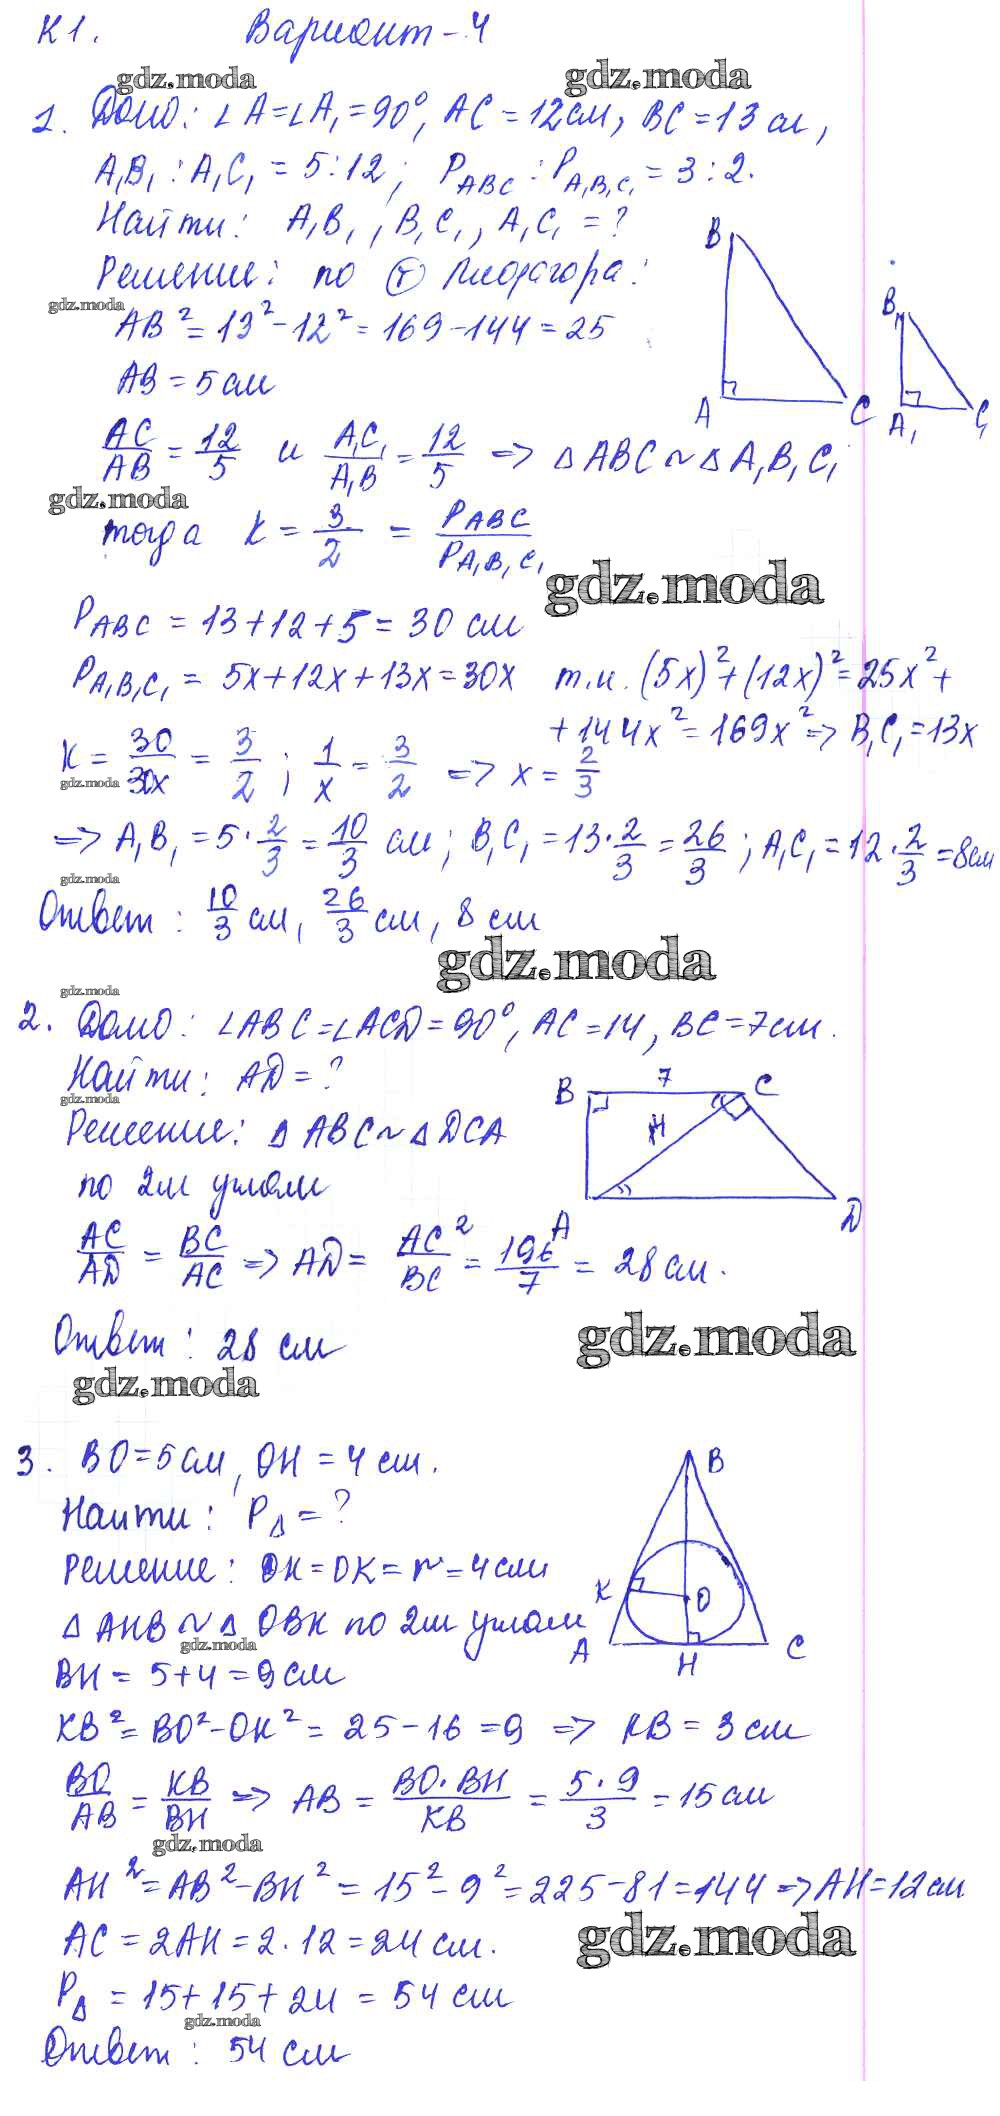 К1. Вариант-4
gdz.moda gdz.moda
1. Дано: ∠A=∠A₁=90°, AC=12см, BC=13см,
A₁B₁:A₁C₁=5:12; P_ABC:P_A₁B₁C₁=3:2.
Найти: A₁B₁, B₁C₁, A₁C₁=?
Решение: по (т) Пифагора:
gdz.moda
AB²=13²-12²=169-144=25
AB=5см
AC/AB=12/5 и A₁C₁/A₁B=12/5 => △ABC~△A₁B₁C₁
gdz.moda
тогда K=3/2=P_ABC/P_A₁B₁C₁
gdz.moda
P_ABC=13+12+5=30 см
P_A₁B₁C₁=5x+12x+13x=30x т.и. (5x)²+(12x)²=25x²+
+144x²=169x² => B₁C₁=13x
K=30/30x=3/2; 1/x=3/2 => x=2/3
gdz.moda
=> A₁B₁=5·2/3=10/3 см; B₁C₁=13·2/3=26/3; A₁C₁=12·2/3=8см
gdz.moda
Ответ: 10/3 см, 26/3 см, 8 см
gdz.moda
gdz.moda
2. Дано: ∠ABC=∠ACD=90°, AC=14, BC=7см.
Найти: AD=?
gdz.moda
Решение: △ABC~△DCA
по 2м углам
AC/AD=BC/AC => AD=AC²/BC=196/7=28см.
Ответ: 28 см
gdz.moda
gdz.moda
3. BO=5см, OH=4см.
Найти: P_△=?
Решение: OH=OK=r=4см
△AHB~△OBK по 2м углам
gdz.moda
BH=5+4=9см
KB²=BO²-OK²=25-16=9 => KB=3см
BO/AB=KB/BH => AB=BO·BH/KB=5·9/3=15см
gdz.moda
AH²=AB²-BH²=15²-9²=225-81=144 => AH=12см
AC=2AH=2·12=24см.
gdz.moda
P_△=15+15+24=54см
gdz.moda
Ответ: 54 см
B
A
C
B₁
A₁
C₁
B
7
C
A
D
B
K
O
A
H
C